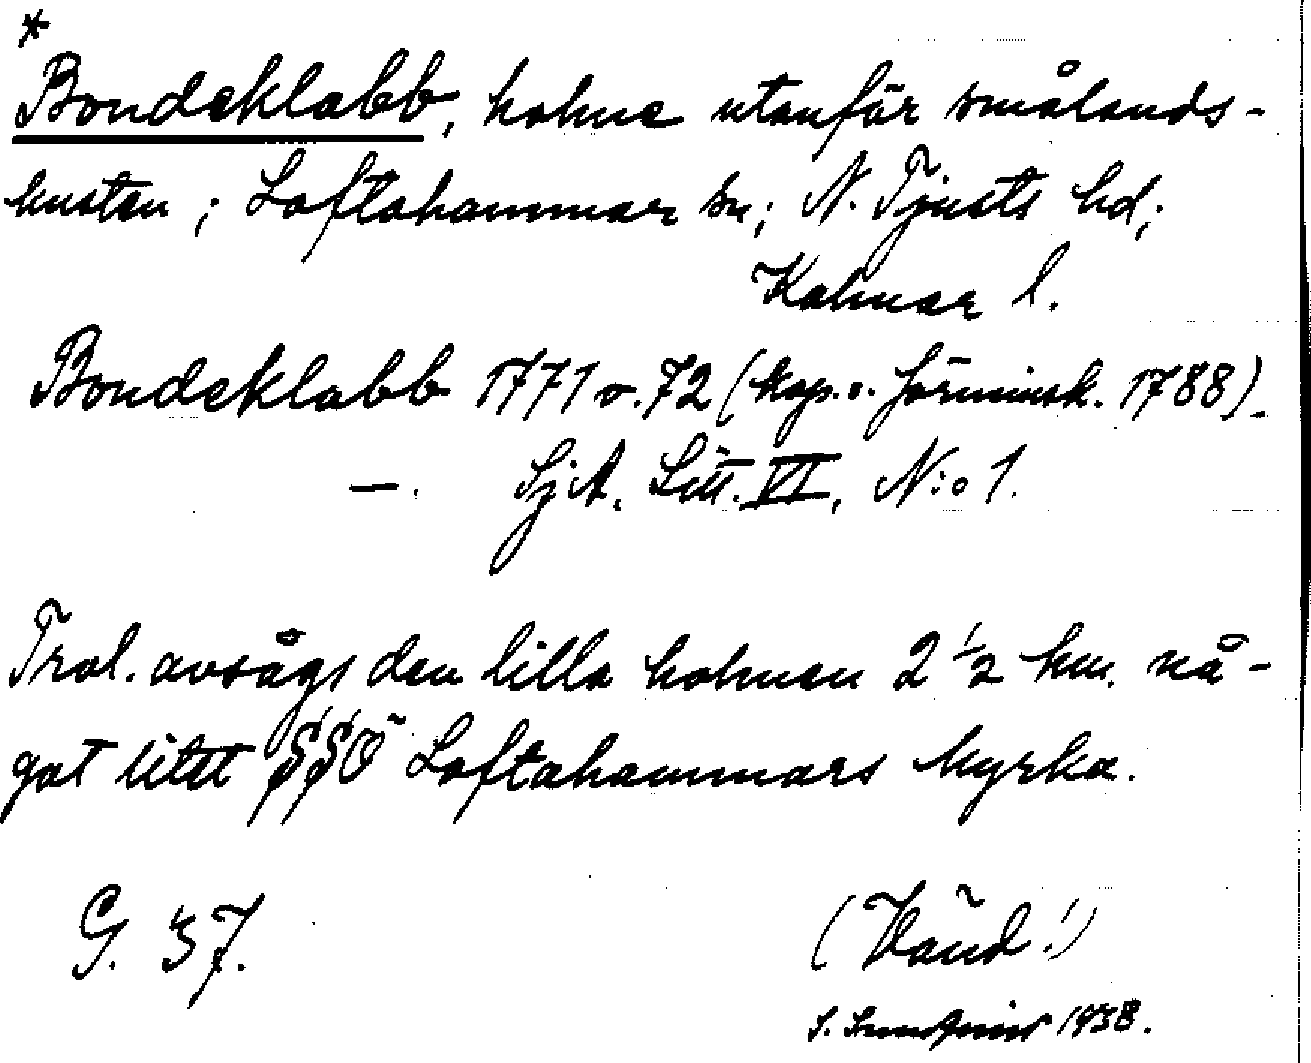 *
Bondeklabb, holme utanför smålands-
kusten; Loftahammar sn; N. Tjusts hd;
Kalmar l.
Bondeklabb 1771 o. 72 (kop. o. förminsk. 1788)
—. SjA. Litt. VI, N:o 1.
Trol. avsågs den lilla holmen 2 ½ km. nå-
got litet SSÖ Loftahammars kyrka.
G. 37.
(Vänd!)
S. Sundqvist 1938.